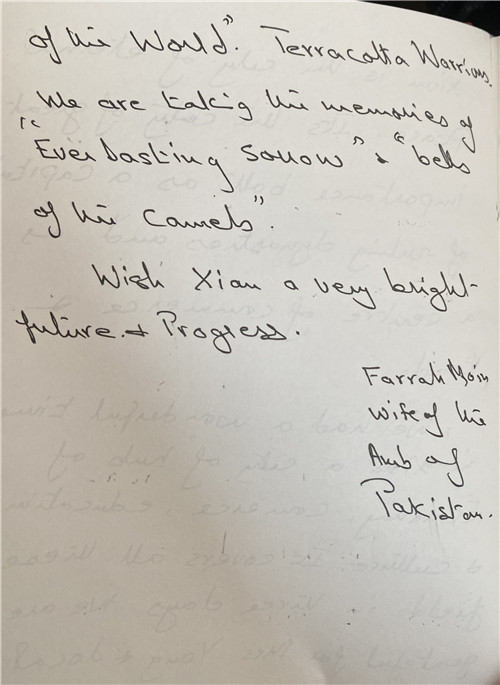 of the World". Terracotta Warriors.
We are taking the memories of
"Everlasting Sorrow" & "bells
of the Camels".
Wish Xian a very bright
future & Progress.
Farrah Moin
Wife of the
Amb of
Pakistan.